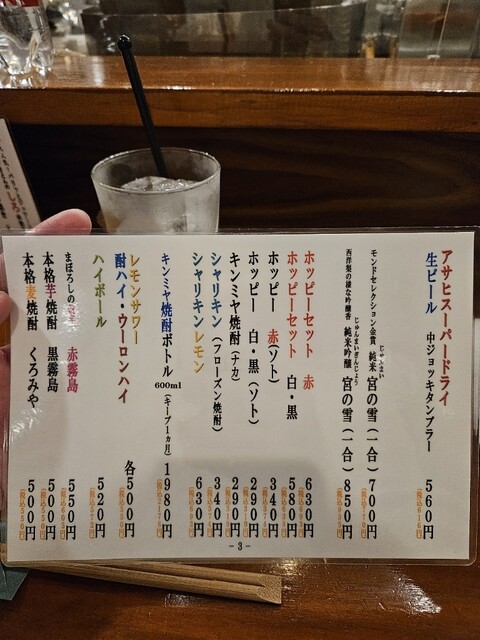 アサヒスーパードライ
生ビール 中ジョッキタンブラー 560円
(税込616円)
モンドセレクション金賞 純米 宮の雪(一合) 700円
じゅんまい
(税込770円)
西洋梨の様な吟醸香 純米吟醸 宮の雪(一合)
じゅんまいぎんじょう
ホッピーセット 赤 630円
(税込693円)
ホッピーセット 白・黒
ホッピー 赤(ソト) 340円
ホッピー 白・黒(ソト) 290円
キンミヤ焼酎(ナカ) 290円
シャリキン(フローズン焼酎) 340円
シャリキンレモン 630円
キンミヤ焼酎ボトル 600ml(キープ1ヵ月) 1980円
レモンサワー
酎ハイ・ウーロンハイ 各500円
(税込550円)
ハイボール 520円
まぼろしの 赤霧島 550円
本格芋焼酎 黒霧島 500円
(税込550円)
本格麦焼酎 くろみや 500円
(税込550円)
- 3 -